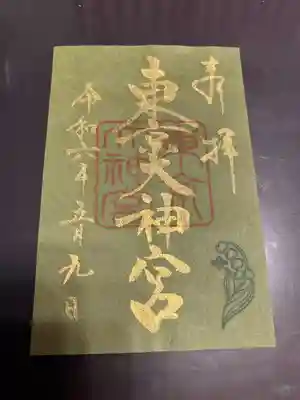 奉拝
東京大神宮
令和六年五月九日